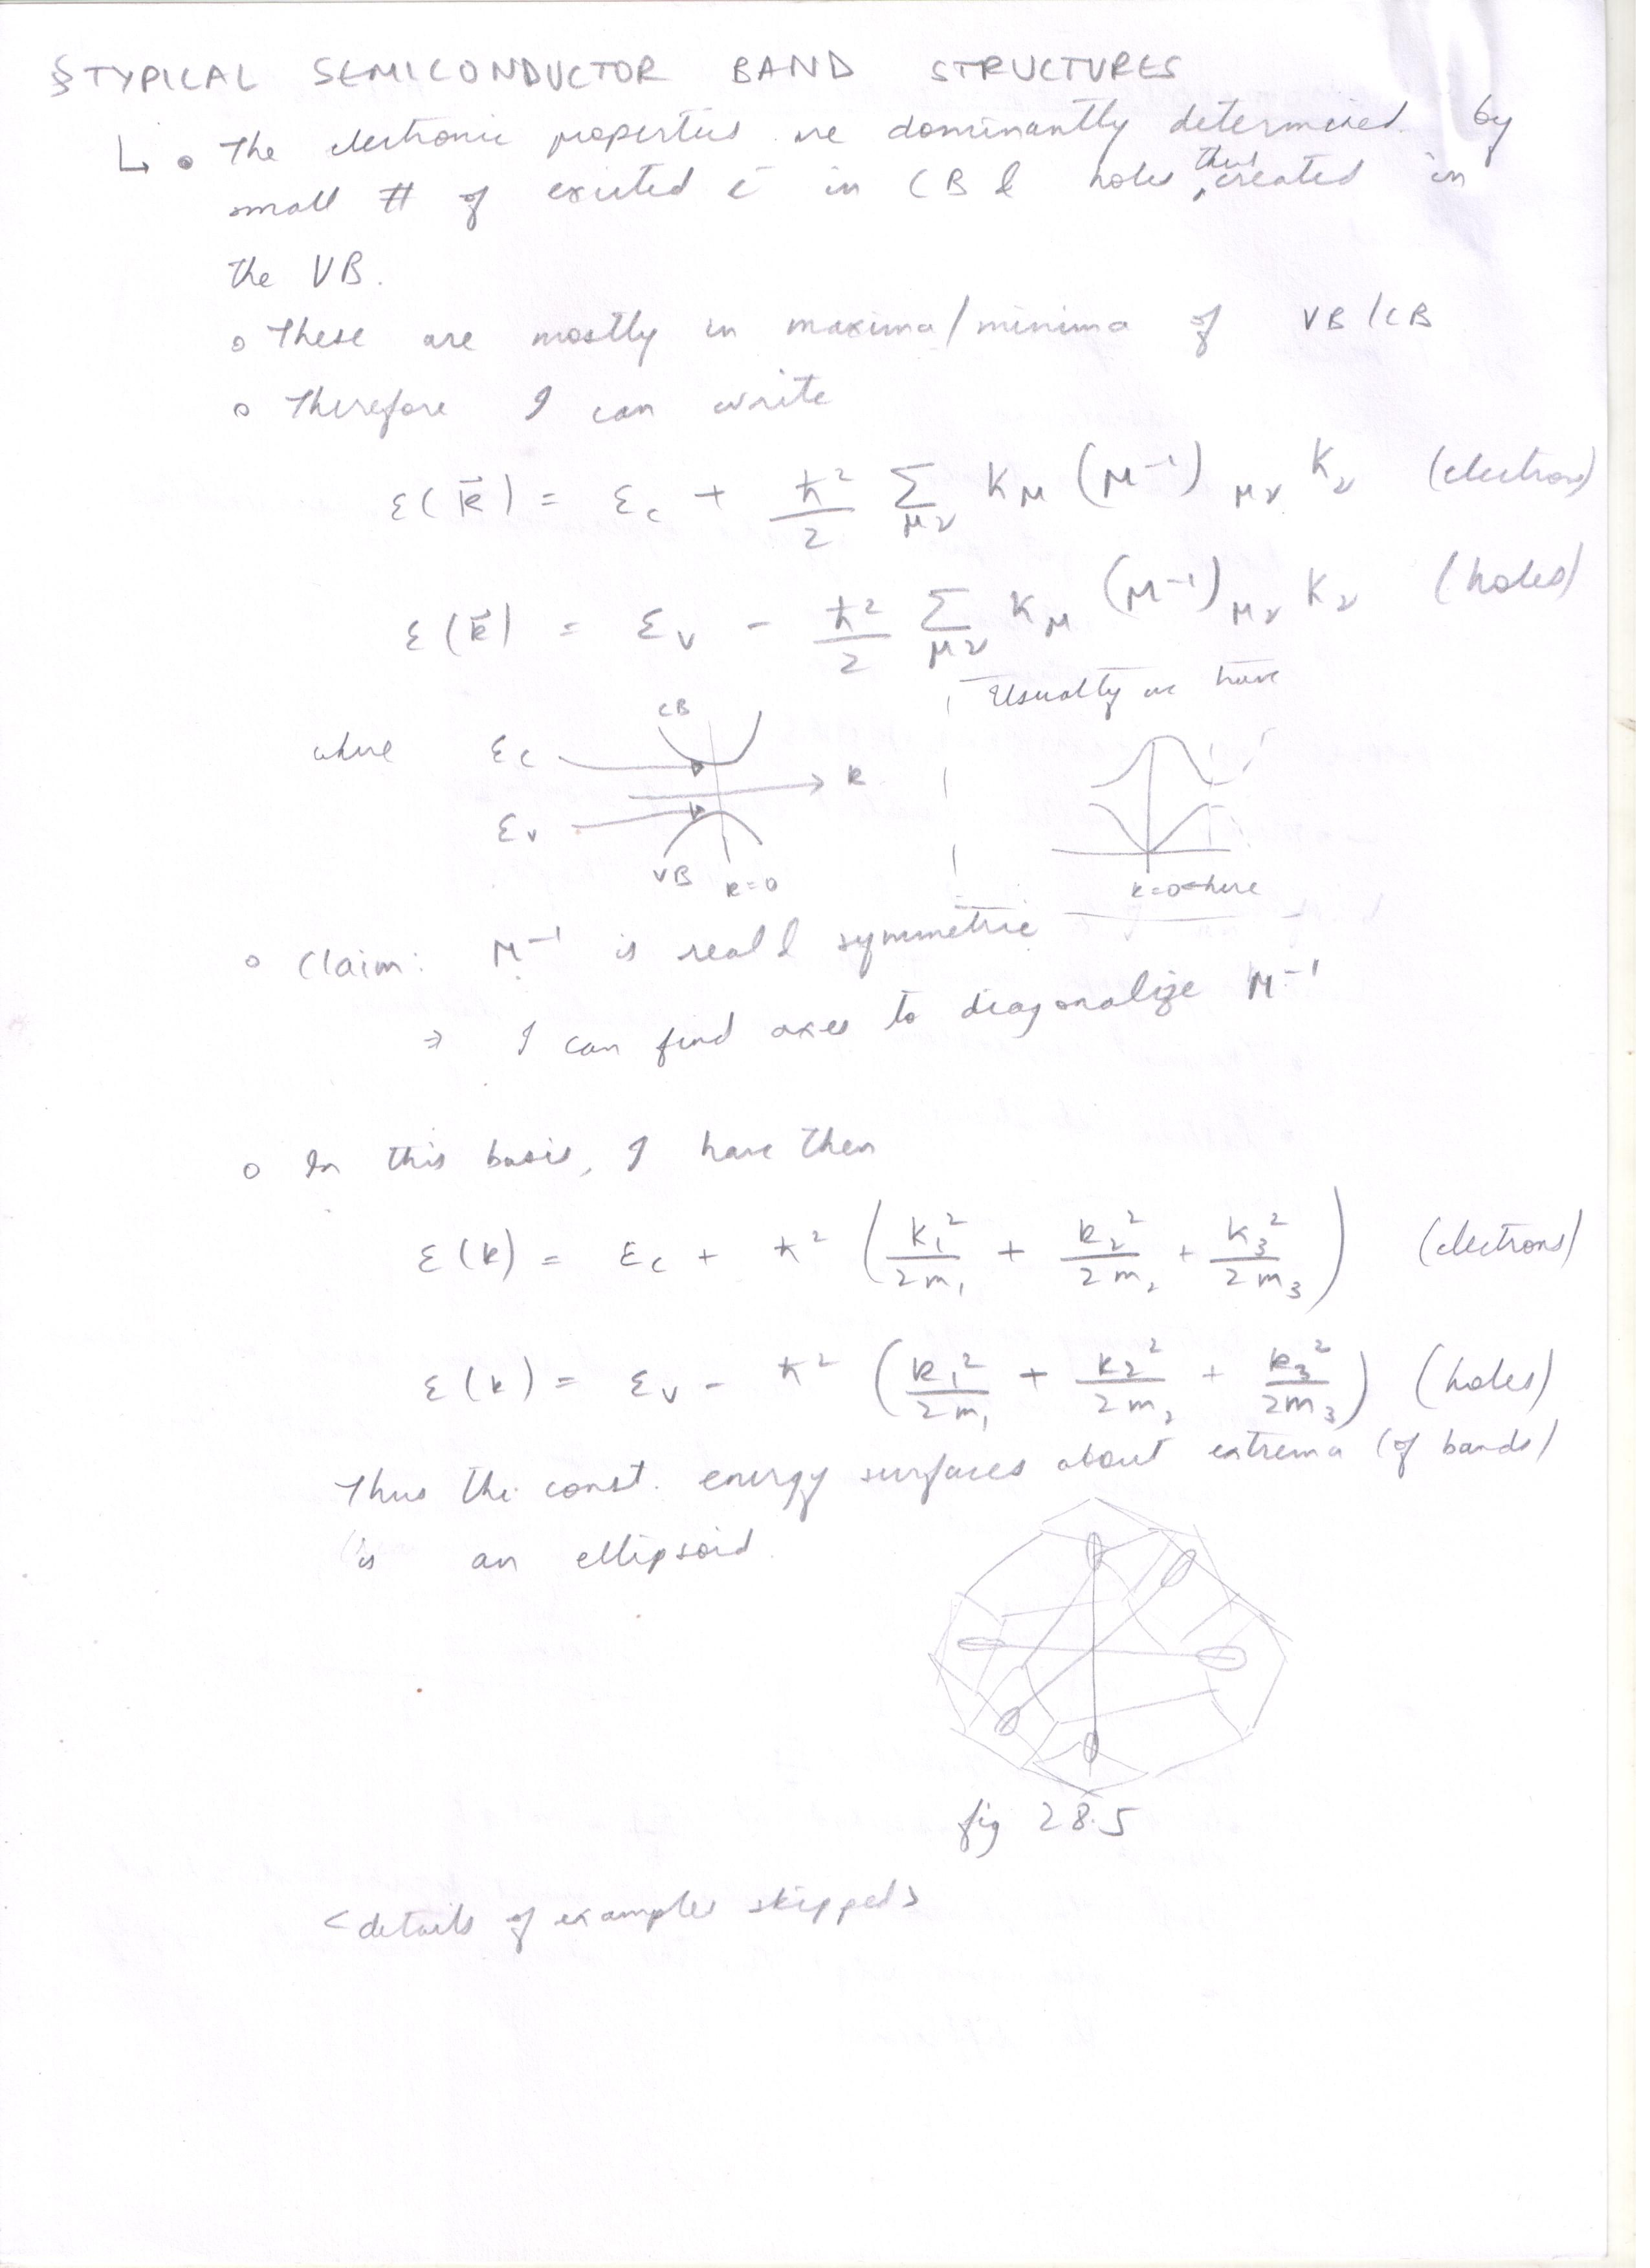 §TYPICAL SEMICONDUCTOR BAND STRUCTURES
↳ • The electronic properties are dominantly determined by
small # of excited e⁻ in CB & holes thus created in
the VB.
o These are mostly in maxima/minima of VB/CB
o Therefore I can write
ε(k⃗) = ε_c + ħ²/2 Σ_μν k_μ (M⁻¹)_μν k_ν (electrons)
ε(k⃗) = ε_v - ħ²/2 Σ_μν k_μ (M⁻¹)_μν k_ν (holes)
Usually we have
where ε_c CB
k
ε_v
VB k=0
k=0 here
o Claim: M⁻¹ is real & symmetric
⇒ I can find axes to diagonalize M⁻¹
o In this basis, I have then
ε(k) = ε_c + ħ² (k₁²/2m₁ + k₂²/2m₂ + k₃²/2m₃) (electrons)
ε(k) = ε_v - ħ² (k₁²/2m₁ + k₂²/2m₂ + k₃²/2m₃) (holes)
Thus the const. energy surfaces about extrema (of bands)
is an ellipsoid.
fig 28.5
<details of examples skipped>